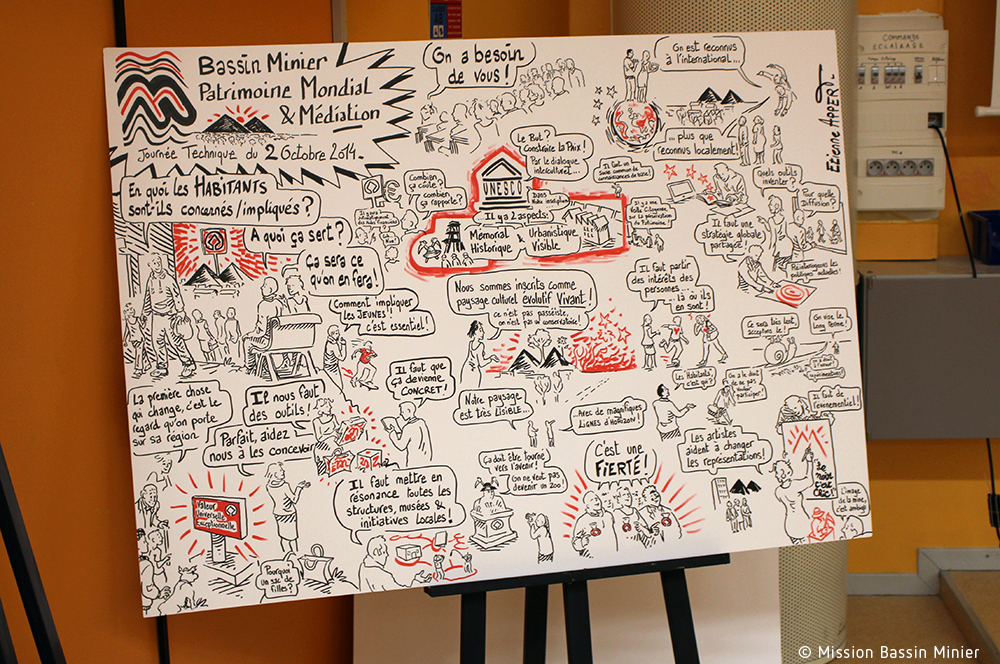 Bassin Minier
Patrimoine Mondial
& Médiation
Journée Technique du 2 Octobre 2014.
On a besoin
de vous !
On est reconnus
à l'international...
... plus que
reconnus localement !
Etienne APPERT
COMMANDE
ECLAIRAGE
En quoi les HABITANTS
sont-ils concernés/impliqués ?
A quoi ça sert ?
Ça sera ce
qu'on en fera !
Comment impliquer
les JEUNES !
c'est essentiel !
Combien
ça coûte ?
combien
ça rapporte ?
Le But ?
Construire la Paix !
Par le dialogue
interculturel...
UNESCO
Dans
notre inscription
Il y a 2 aspects :
Mémorial
Historique
&
Urbanistique
Visible
Il faut un
socle commun de
connaissances de base !
Il y a une
Quels outils
inventer ?
Pour quelle
Diffusion ?
Il faut une
stratégie globale
partagée !
politiques culturelles !
Nous sommes inscrits comme
paysage culturel évolutif Vivant !
ce n'est pas passéiste,
on n'est pas un conservatoire !
Il faut partir
des intérêts des
personnes...
... là où ils
en sont !
Ce sera très lent,
acceptons le !
On vise le
Long Terme !
La première chose
qui change, c'est le
regard qu'on porte
sur sa région
Il nous faut
des outils !
Parfait, aidez
nous à les concevoir
Il faut que
ça devienne
CONCRET !
Notre paysage
est très LISIBLE...
...Avec de magnifiques
LIGNES d'HORIZON !
Les Habitants,
c'est qui ?
On a le droit
de ne pas
vouloir
participer.
Il faut de
l'évènementiel !
Valeur
Universelle
Exceptionnelle
Pourquoi
un sac de
filles ?
Il faut mettre en
résonance toutes les
structures, musées &
initiatives Locales !
Ça doit être Tourné
vers l'avenir !
On ne veut pas
devenir un Zoo !
C'est une
FIERTÉ !
Les artistes
aident à changer
les représentations !
Le Noir
C'est
Chic !
L'image
de la mine,
c'est ambigu
© Mission Bassin Minier